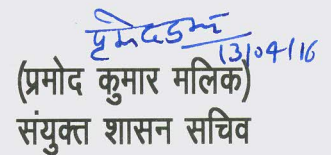 13/04/16
(प्रमोद कुमार मलिक)
संयुक्त शासन सचिव